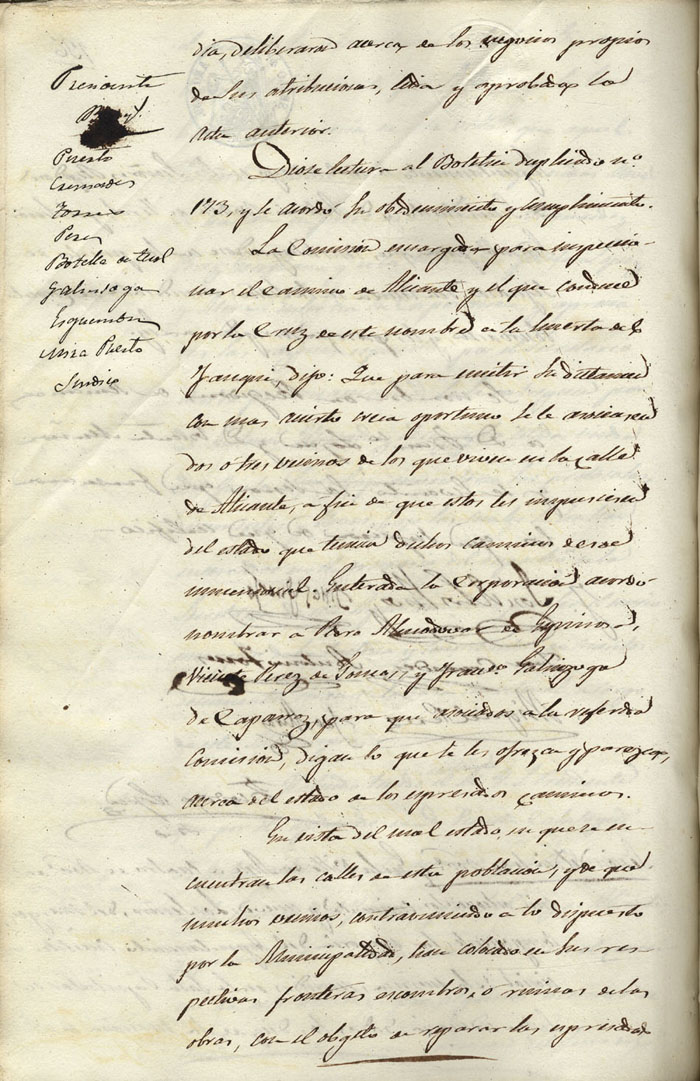 Presidente
Puerto
Cremades
Torres
Perez
Botella de Tual
Galiasoga
Esquembre
Mira Puerto
Sindico
dia, deliberaron acerca de los negocios propios
de sus atribuciones, leida y aprobada la
acta anterior.
Diose lectura al Boletin duplicado nº
173, y se acordó su obedecimiento y cumplimiento.
La Comision encargada para inspeccio-
nar el camino de Alicante y el que conduce
por la Cruz de este nombre a la huerta de
dijo: Que para emitir su dictamen
con mas acierto creia oportuno se le asociasen
dos ó tres vecinos de los que viven en la calle
de Alicante, a fin de que estos les impusiesen
del estado que tenian dichos caminos desde
inmemorial. Enterada la Corporacion acordó
nombrar a Pedro Almodovar de
Vicente Perez de Tomas, y Franco. Galiazoga
de Caparroz, para que asociados a la referida
Comision, digan lo que se les ofrezca y parezca,
acerca del estado de los espresados caminos.
En vista del mal estado en que se en-
cuentran las calles de esta poblacion, y de que
muchos vecinos, contraviniendo a lo dispuesto
por la Municipalidad, han colocado en sus res-
pectivas fronteras escombros o ruinas de las
obras, con el objeto de reparar las espresadas